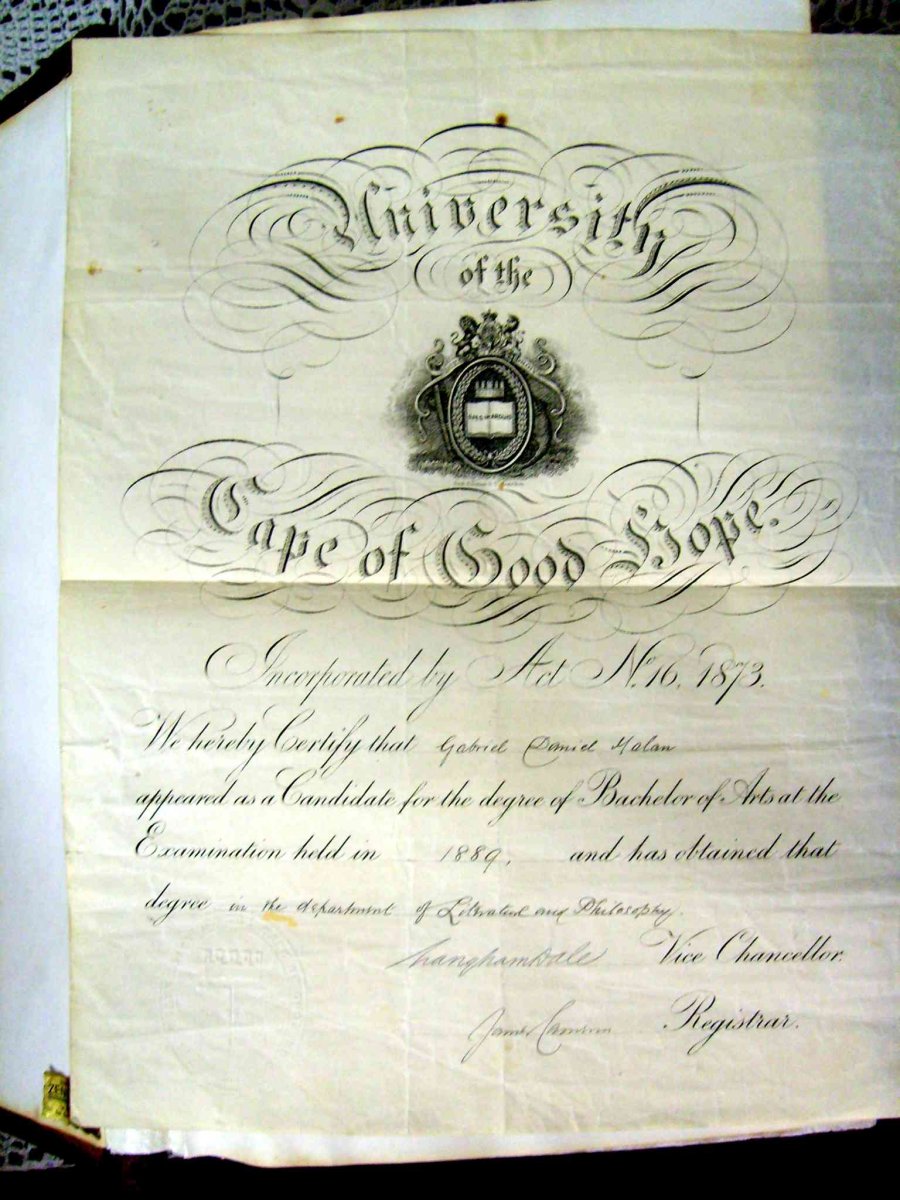 University
of the
Cape of Good Hope.
Incorporated by Act No. 16, 1873.
We hereby Certify that Gabriel Daniel Malan
appeared as a Candidate for the degree of Bachelor of Arts at the
Examination held in 1889, and has obtained that
degree in the department of Literature and Philosophy.
Langham Dale Vice Chancellor.
James Cameron Registrar.